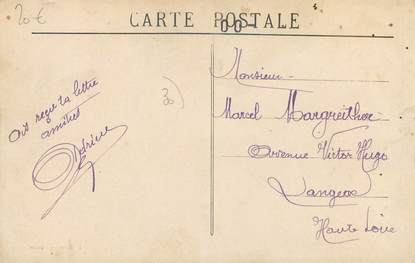 20€
CARTE POSTALE
30
Ai reçu ta lettre
amitiés
Monsieur
Marcel Margreithor
Avenue Victor Hugo
Langeac
Haute Loire